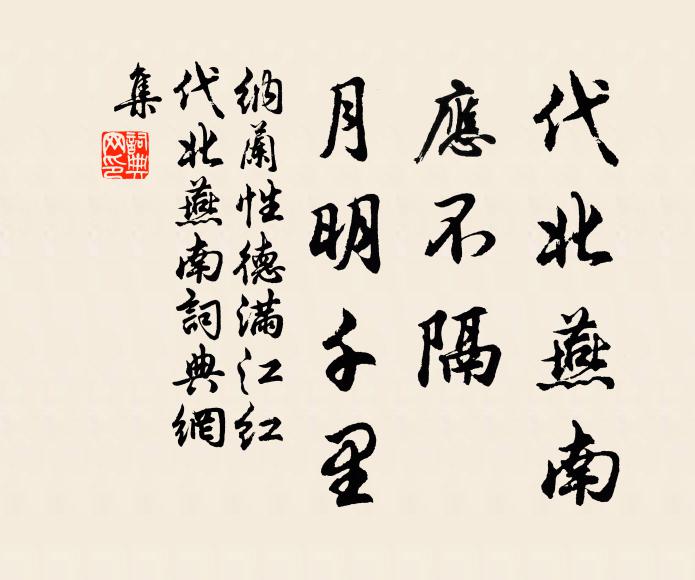 代北燕南
應不隔
月明千里
納蘭性德滿江紅
代北燕南詞典網
集
詞典
网印